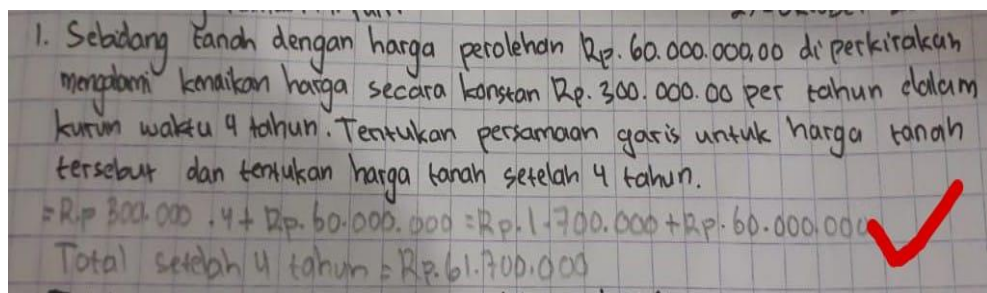 1. Sebidang tanah dengan harga perolehan Rp. 60.000.000,00 diperkirakan
mengalami kenaikan harga secara konstan Rp. 300.000.00 per tahun dalam
kurun waktu 4 tahun. Tentukan persamaan garis untuk harga tanah
tersebut dan tentukan harga tanah setelah 4 tahun.
= Rp 300.000 . 4 + Rp. 60.000.000 = Rp. 1.700.000 + Rp. 60.000.000
Total setelah 4 tahun = Rp. 61.700.000